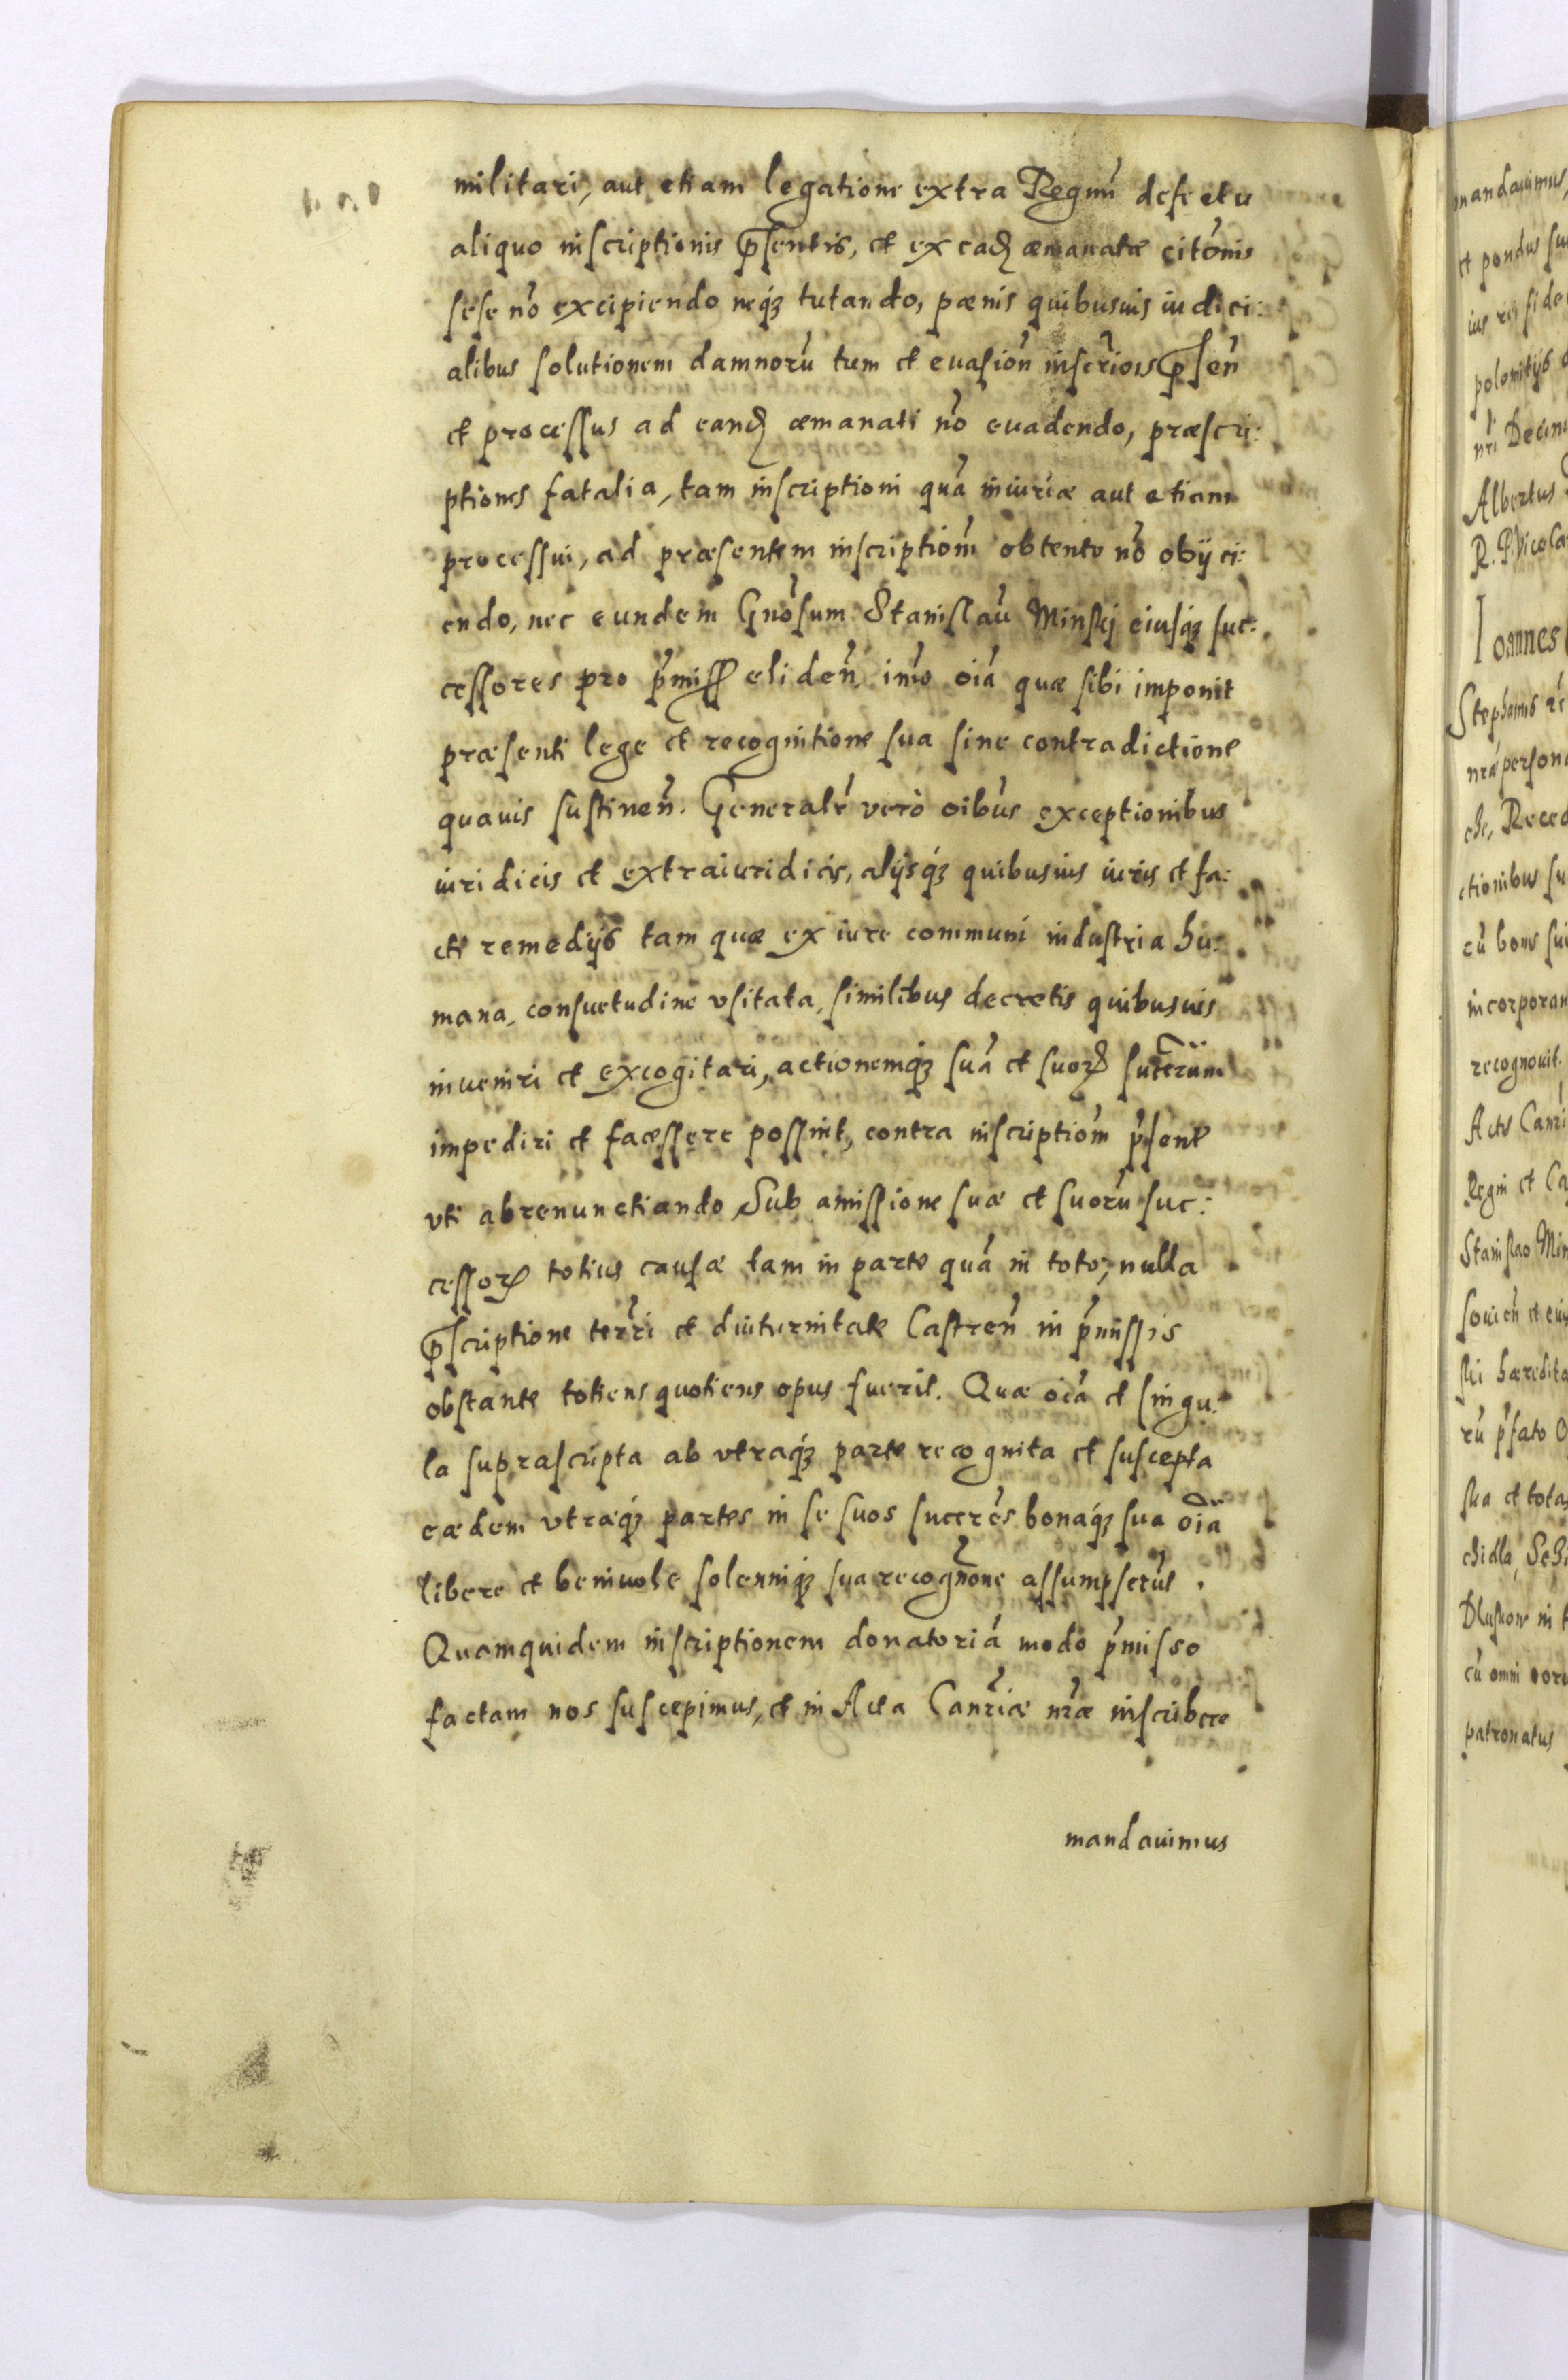 militari, aut etiam legatione extra Regnũ defectu
aliquo inscriptionis p̃sentis, et ex eadẽ æmanatæ citõnis
sese nõ excipiendo neq3 tutando, pænis quibusuis iudici:
alibus solutionem damnorũ tum et euasioñ inscrĩois p̃señ
et processus ad eandẽ æmanati nõ euadendo, præscri:
ptiones fatalia, tam inscriptioni quã iniuriæ aut etiam
processui, ad præsentem inscriptiom̃ obtento nõ obijci:
endo, nec eundem Gnõsum Stanislaũ Minskj eiusq3 suc:
cessores pro p̃miss eliden̄ imo oĩa quæ sibi imponit
præsenti lege et recognitione sua sine contradictione
quauis sustineñ. Generalr̃ verò oĩbus exceptionibus
iuridicis et extraiuridicis, alijsq3 quibusuis iuris et fa:
cti remedijs tam quæ ex iure communi industria hu:
mana, consuetudine vsitata, similibus decretis quibusuis
inueniri et excogitari, actionemq3 suã et suorũ succrũm
impediri et facessere possint, contra inscriptiom̃ p̃sent
vti abrenunctiando Sub amissione suæ et suorũ suc:
cessorũ totius causæ tam in parte quã in toto, nulla
p̃scriptione terr̃i et diuturnitate Castreñ in p̃missis
obstante totiens quotiens opus fuerit. Quæ oĩa et singu:
la suprascripta ab vtraq3 parte recognita et suscepta
eædem vtræq3 partes in se suos succrẽs bonaq3 sua oĩa
libere et beniuole solenniq3 sua recognõne assumpserũt.
Quamquidem inscriptionem donatoriã modo p̃misso
factam nos suscepimus, et in Acta Canr̃iæ nr̃æ inscribere
mandauimus
mandauimus,
et pondus
polonitijs
nr̃i
Albertus
Ioannes
Stephanus
nr̃a persona
ctionibus
cũ bonis
incorporan
recognouit.
Acta Canr̃i
Regni et Ca
Stanislao Min
ski hæredita
rũ p̃fato
sua et tota
cũ omni
patronatus